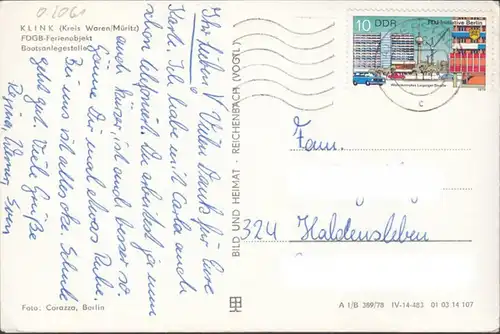 0.2061
KLINK (Kreis Waren/Müritz)
FDGB-Ferienobjekt
Bootsanlegestelle
Ihr lieben! Vielen Dank für Eure
Karte. Ich habe mit Carla auch
schon telefoniert. Du arbeitest ja nun
auch kürzer, ist auch besser so.
Gönne Dir mal etwas Ruhe.
Bei uns ist alles ok. Schule
geht gut. Viele Grüße
Regina, Werner, Sven
Foto: Carazza, Berlin
BILD UND HEIMAT · REICHENBACH (VOGTL)
10 DDR
FDJ-Initiative Berlin
Wohnkomplex Leipziger Straße
1979
c
Fam.
324 Haldensleben
A I/B 389/78 IV-14-483 01 03 14 107